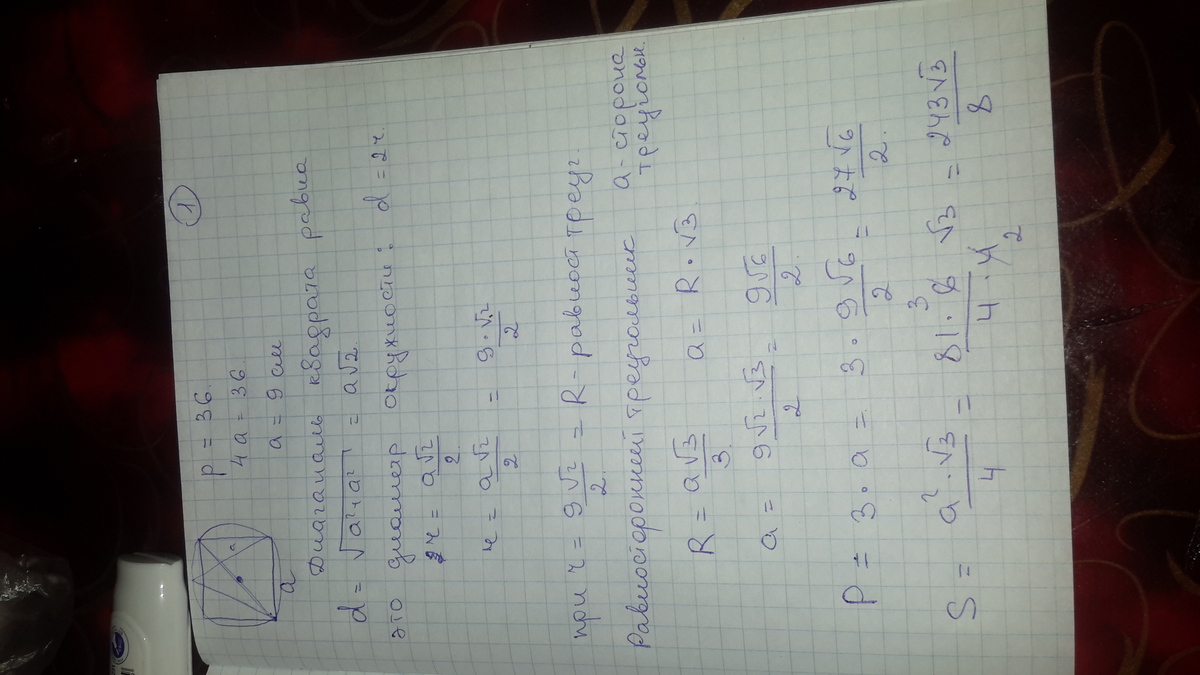 1
P = 36.
4a = 36
a = 9 см
a
a
Диагональ квадрата равна
d = √(a²+a²) = a√2.
это диаметр окружности: d = 2r.
r = a√2/2.
r = a√2/2 = 9·√2/2
при r = 9√2/2. = R - равност треуг.
Равносторонний треугольник a - сторона треугольн.
R = a√3/3. a = R·√3.
a = 9√2·√3/2 = 9√6/2.
P = 3·a = 3·9√6/2 = 27√6/2.
S = a²·√3/4 = 81·6 3 √3/4·4 2 = 243√3/8